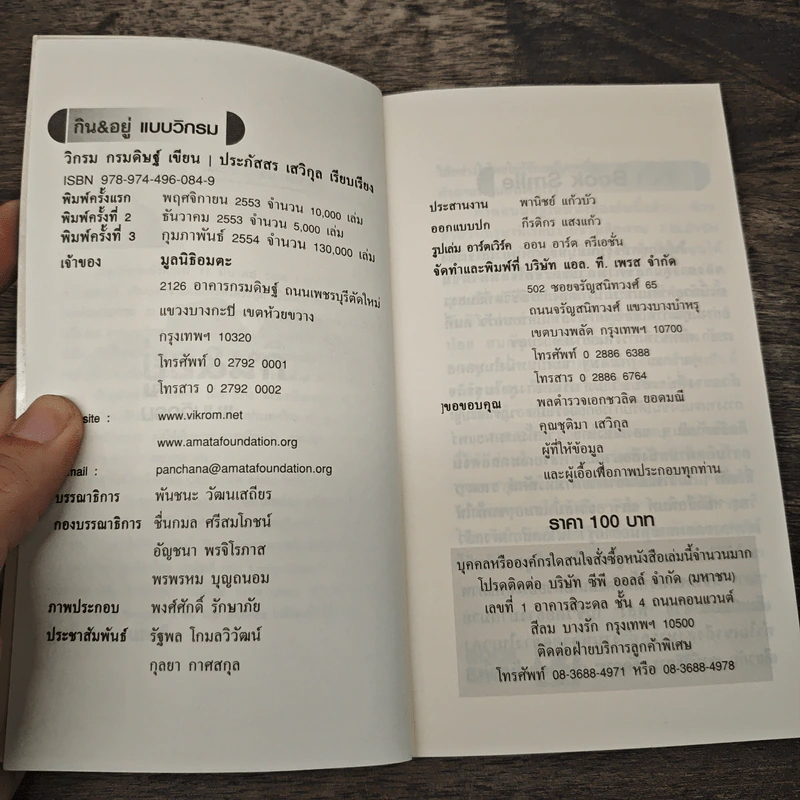 กิน&อยู่ แบบวิกรม
วิกรม กรมดิษฐ์ เขียน | ประภัสสร เสวิกุล เรียบเรียง
ISBN 978-974-496-084-9
พิมพ์ครั้งแรก พฤศจิกายน 2553 จำนวน 10,000 เล่ม
พิมพ์ครั้งที่ 2 ธันวาคม 2553 จำนวน 5,000 เล่ม
พิมพ์ครั้งที่ 3 กุมภาพันธ์ 2554 จำนวน 130,000 เล่ม
เจ้าของ มูลนิธิอมตะ
2126 อาคารกรมดิษฐ์ ถนนเพชรบุรีตัดใหม่
แขวงบางกะปิ เขตห้วยขวาง
กรุงเทพฯ 10320
โทรศัพท์ 0 2792 0001
โทรสาร 0 2792 0002
site : www.vikrom.net
www.amatafoundation.org
mail : panchana@amatafoundation.org
บรรณาธิการ พันชนะ วัฒนเสถียร
กองบรรณาธิการ ชื่นกมล ศรีสมโภชน์
อัญชนา พรจิโรภาส
พรพรหม บุญถนอม
ภาพประกอบ พงศ์ศักดิ์ รักษาภัย
ประชาสัมพันธ์ รัฐพล โกมลวิวัฒน์
กุลยา กาศสกุล
ประสานงาน พานิชย์ แก้วบัว
ออกแบบปก กีรติกร แสงแก้ว
รูปเล่ม อาร์ตเวิร์ค ออน อาร์ต ครีเอชั่น
จัดทำและพิมพ์ที่ บริษัท แอล. ที. เพรส จำกัด
502 ซอยจรัญสนิทวงศ์ 65
ถนนจรัญสนิทวงศ์ แขวงบางบำหรุ
เขตบางพลัด กรุงเทพฯ 10700
โทรศัพท์ 0 2886 6388
โทรสาร 0 2886 6764
ขอขอบคุณ พลตำรวจเอกชวลิต ยอดมณี
คุณชุติมา เสวิกุล
ผู้ที่ให้ข้อมูล
และผู้เอื้อเฟื้อภาพประกอบทุกท่าน
ราคา 100 บาท
บุคคลหรือองค์กรใดสนใจสั่งซื้อหนังสือเล่มนี้จำนวนมาก
โปรดติดต่อ บริษัท ซีพี ออลล์ จำกัด (มหาชน)
เลขที่ 1 อาคารสิวะดล ชั้น 4 ถนนคอนแวนต์
สีลม บางรัก กรุงเทพฯ 10500
ติดต่อฝ่ายบริการลูกค้าพิเศษ
โทรศัพท์ 08-3688-4971 หรือ 08-3688-4978